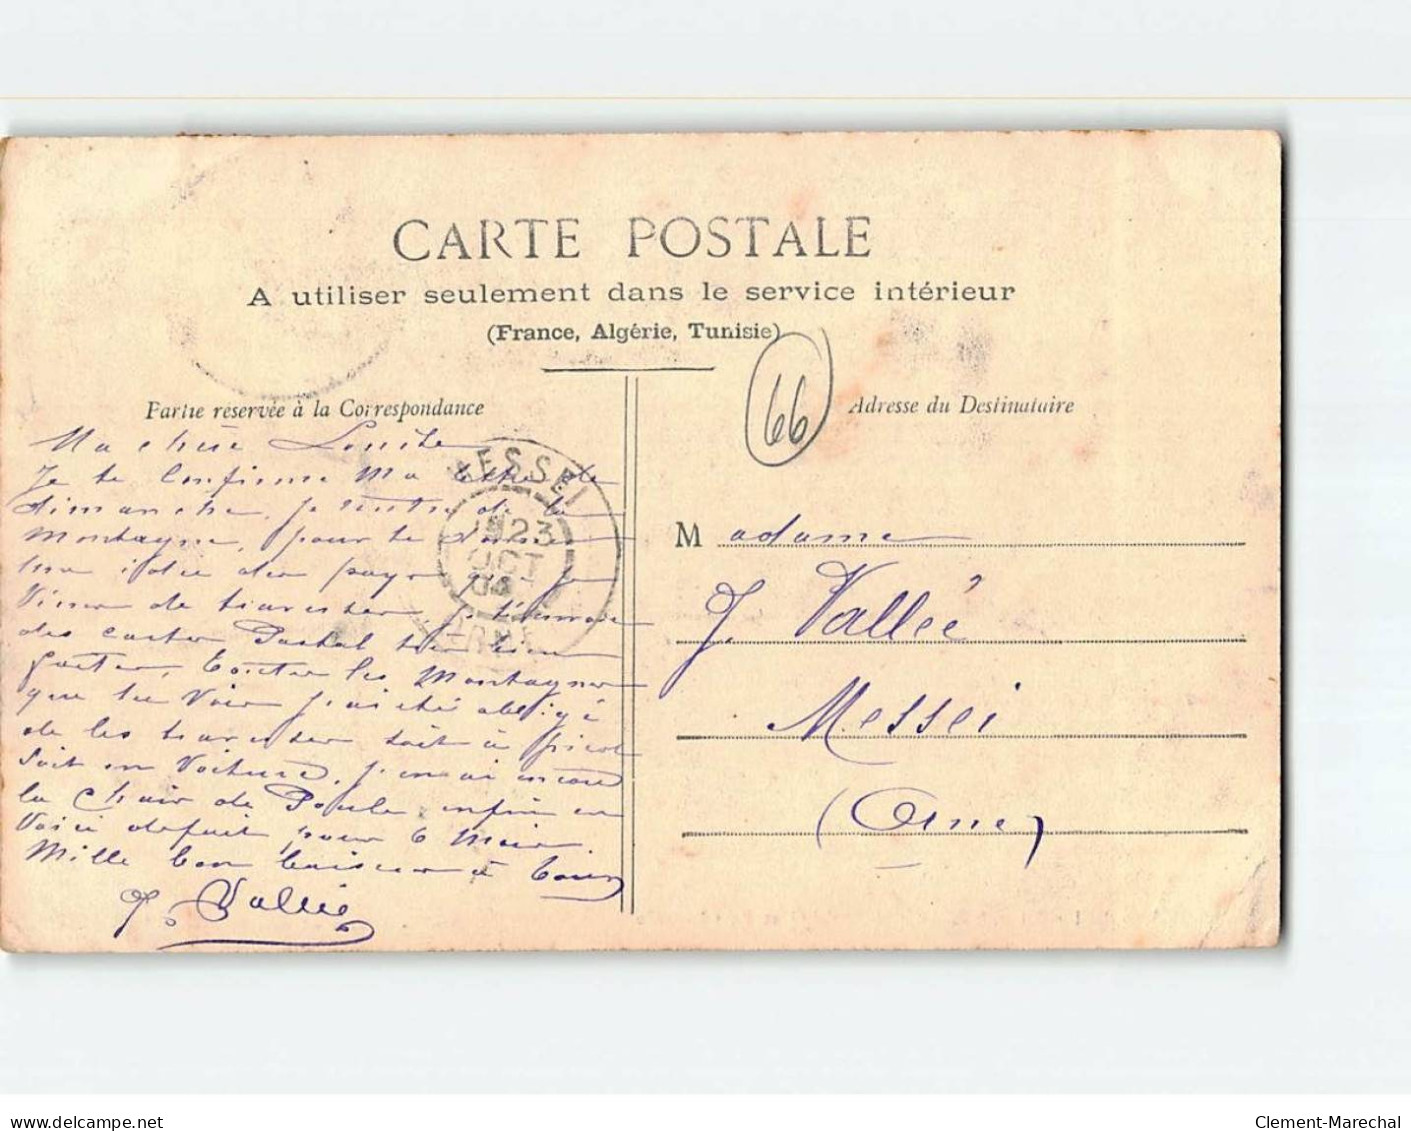 CARTE POSTALE
A utiliser seulement dans le service intérieur
(France, Algérie, Tunisie)
66
Partie réservée à la Correspondance
Adresse du Destinataire
Ma chère Louise
Je te Confirme Ma lettre de
dimanche, je rentre de la
Montagne, pour te donner
une idée des pays que je
Viens de traverser je t'envoie
des cartes Postal
que tu Voir j'ai été obligé
de les traverser soit à pied
soit en Voiture, j'en ai encore
la Chair de Poule enfin en
Voici defait pour 6 Mois.
Mille bon baisers à tous
J. Vallée
MESSEI
23
OCT
04
ORNE
M adame
J. Vallée
Messei
(Orne)
www.delcampe.net
Clement-Marechal